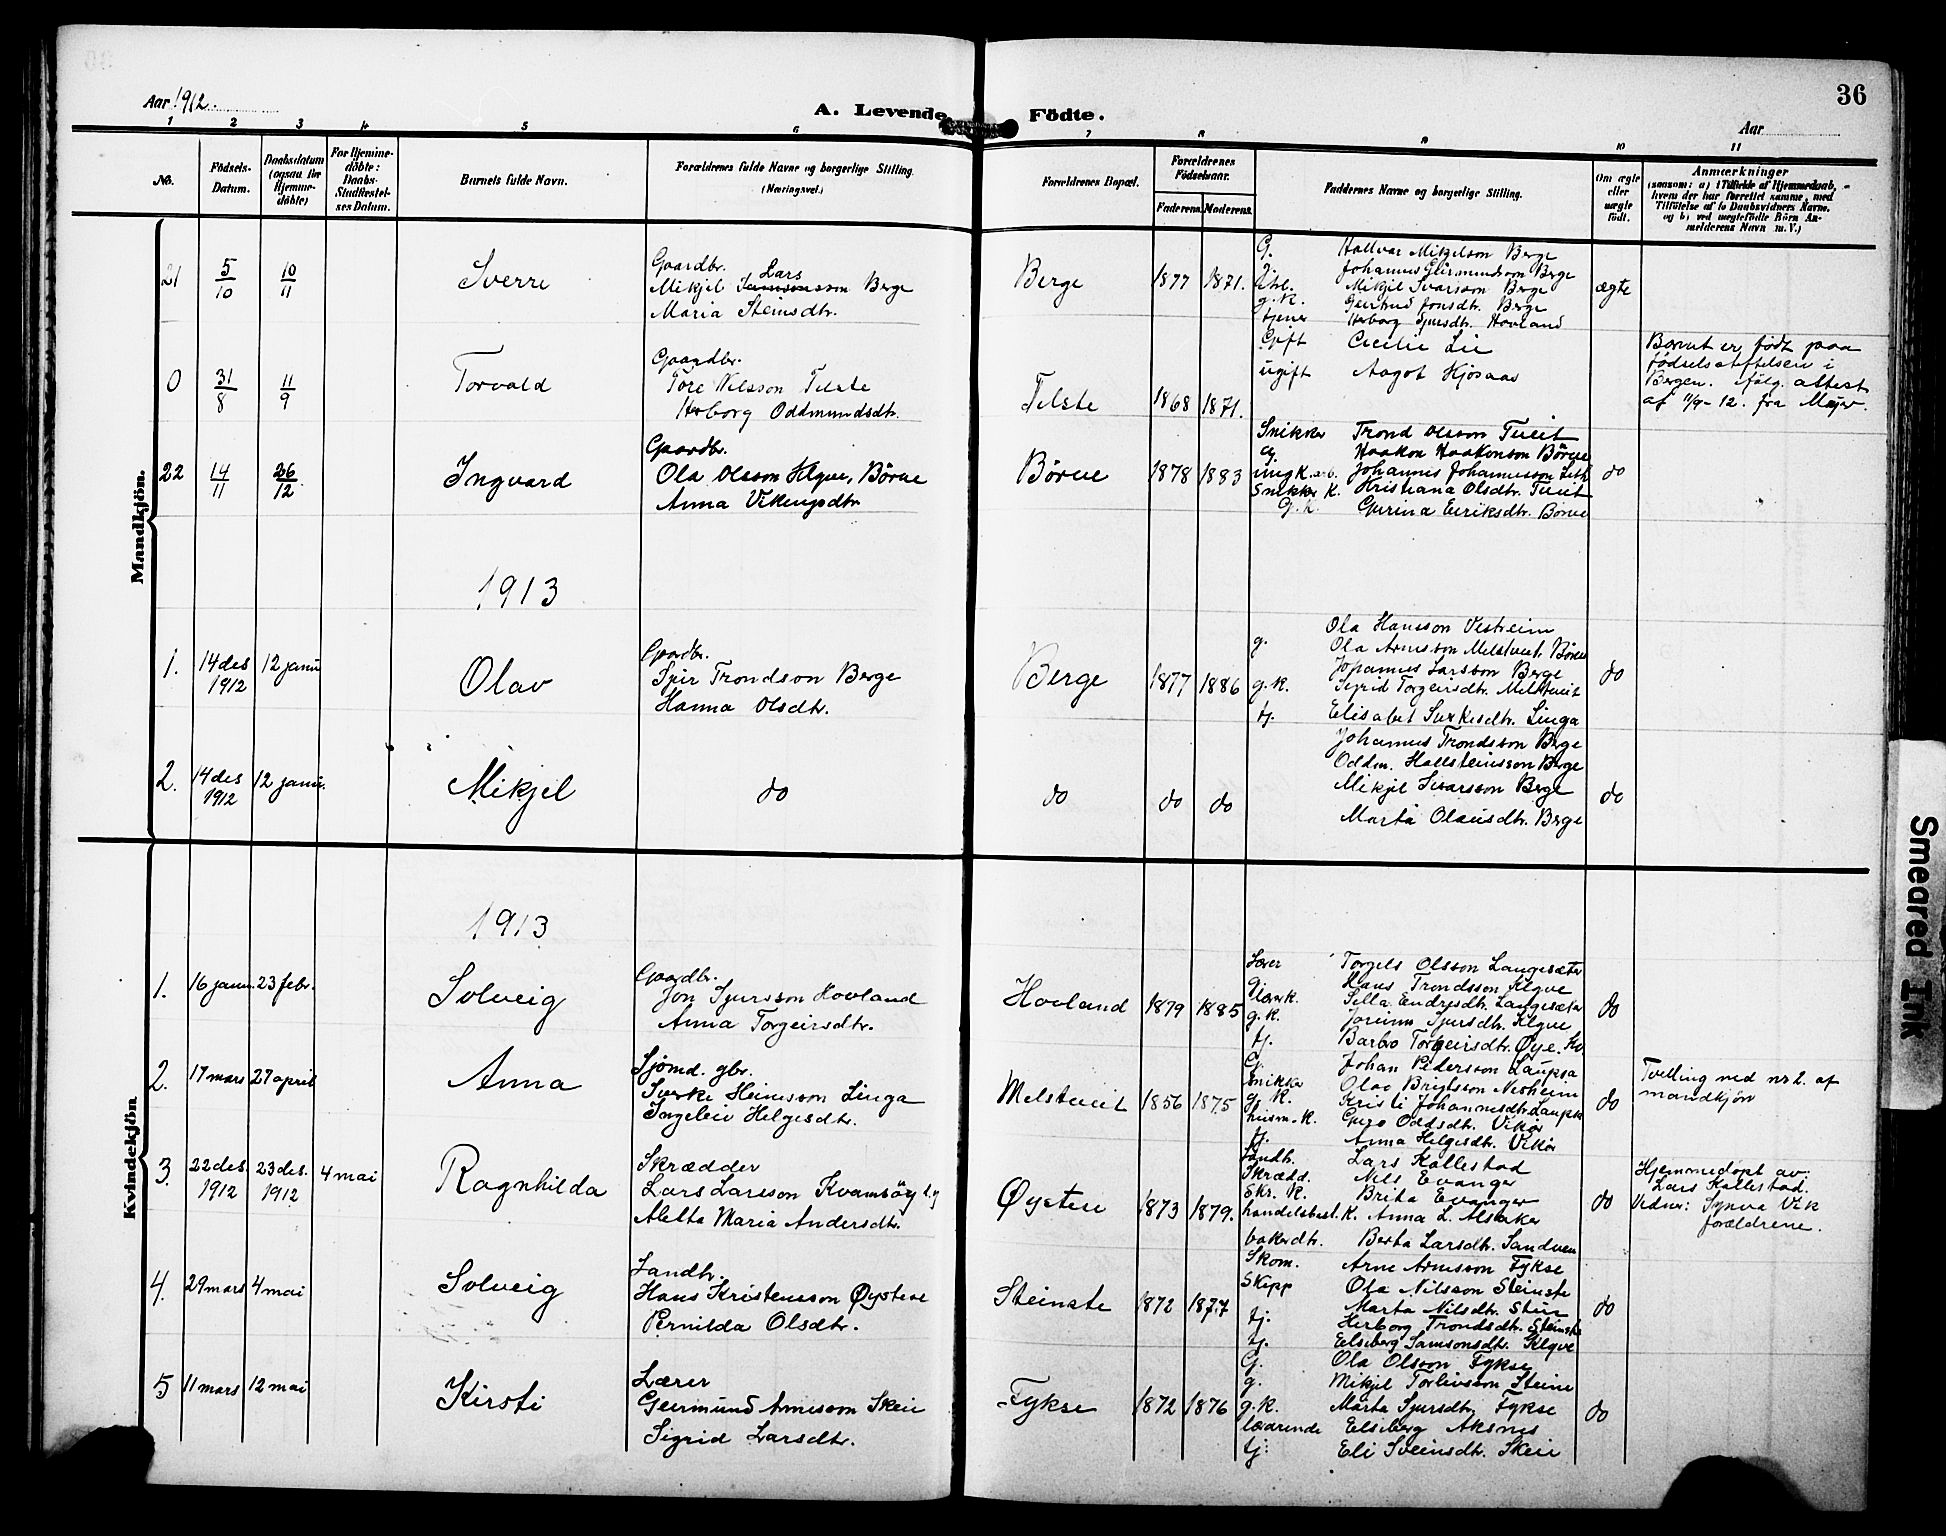 36
Aar 1912.
A. Levende Födte.
Aar
1 2 3 4 5 6 7 8 9 10 11
No.
Födsels-Datum.
Daabsdatum (ogsaa for Hjemme-døbte)
For Hjemme-døbte: Daabs-Stadfæstel-ses Datum.
Barnets fulde Navn.
Forældrenes fulde Navne og borgerlige Stilling. (Næringsvei.)
Forældrenes Bopæl.
Forældrenes Födselsaar.
Faderens. Moderens.
Faddernes Navne og borgerlige Stilling.
Om ægte eller uægte født.
Anmærkninger
(saasom: a) i Tilfælde af Hjemmedaab, hvem der har forrettet samme, med Tilføielse af to Daabsvidners Navne, og b) ved uægtefødte Börn Anmelderens Navn m. V.)
Mandkjön.
21 5/10 10/11 Sverre
Gaardbr. Lars
Mikjel Samsonsson Berge
Maria Steinsdtr.
Berge 1877 1871.
G. Hallvar Mikjelson Berge
Johannes Geirmundson Berge
Mikjel Ivarsson Berge
g. K. Geirtrud Jonsdtr. Berge
tjener Herborg Sjursdtr. Hovland
ægte
0 31/8 11/9 Torvald
Gaardbr.
Tore Nilsson Telste
Herborg Oddmundsdtr.
Telste 1868 1871.
Gift Cecilie Lie
ugift Aagot Hjosaas
Barnet er født paa
fødselsstiftelsen i
Bergen. ifølg. attest
af 11/9-12. fra Mejer.
22 14/11 26/12 Ingvard
Gaardbr.
Ola Olsson Klyve, Börve
Anna Vikingsdtr.
Börve 1878 1883
Snikker Trond Olsson Tveit
G. Haakon Haakonson Börve
ungk. arb. Johannes Johannesson Leth
Snikker K. Kristiana Olsdtr. Tveit
G. K. Gurina Eiriksdtr. Börve
do
1913
1. 14 des 1912 12 janu Olav
Gaardbr.
Sjur Trondson Berge
Hanna Olsdtr.
Berge 1877 1886
Ola Hansson Vestreim
g. Ola Arnesson Melstveit, Börve
Johannes Larsson Berge
g. K. Sigrid Torgeirsdtr. Melstveit
tj. Elisabet Sverkesdtr. Linga
do
2. 14 des 1912 12 janu. Mikjel
do do do do
Johannes Trondsson Berge
Oddm. Hallsteinsson Berge
Mikjel Ivarsson Berge
Marta Olavsdtr. Berge
do
Kvindekjön
1913
1. 16 janu. 23 febr. Solveig
Gaardbr.
Jon Sjursson Hovland
Anna Torgeirsdtr.
Hovland 1879 1885
Lærer Torgels Olsson Langesæter
G. Hans Trondsson Klyve
Lærerk. Silla Endresdtr. Langesæter
g. K. Joreinn Sjursdtr. Klyve
tj. Barbro Torgeirsdtr. Øye. Kv.
do
2. 17 mars 27 april Anna
Sjömd. gbr.
Sverke Heinesson Linga
Ingeleiv Helgesdtr.
Melstveit 1856 1875
G. Johan Pedersson Laupsa
Snikker Olav Brigtsson Nesheim
g. K. Kristi Johannesdtr. Laupsa
husm. K. Guro Oddsdtr. Vikør
tj. Anna Helgesdtr. Vikør
do
Tvelling med nr 2. af
mandkjön
3. 22 des. 1912 23 des. 1912 4 mai Ragnhilda
Skrædder
Lars Larsson Kvamsöy
Aletta Maria Andersdtr.
Øystese 1873 1879.
Landh. Lars Kallestad
Skrædd. Nils Evanger
Skr. K. Brita Evanger
handelsbest. K. Anna L. Alsaker
bakerdtr. Berta Larsdtr. Sandven
do
Hjemmedöpt av:
Lars Kallestad.
Vidner: Synva Vik
forældrene.
4. 29 mars 4 mai Solveig
Landh.
Hans Kristensson Øystese
Pernilda Olsdtr.
Steinste 1872 1877
Skom. Arne Arnesson Fykse
Skipp Ola Nilsson Steinste
Marta Nilsdtr. Stein
tj. Herborg Trondsdtr. Steinstø
tj. Elseberg Samsonsdtr. Klyve
do
5 11 mars 12 mai Kirsti
Lærer
Geirmund Arnesson Skeie
Sigrid Larsdtr.
Fykse 1872 1876
G. Ola Olsson Fykse
g. Mikjel Torleivsson Steine
g. K. Marta Sjursdtr. Fykse
lærerinde Elseberg Aksnes
tj: Eli Sveinsdtr. Skeie
do
Smeared Ink